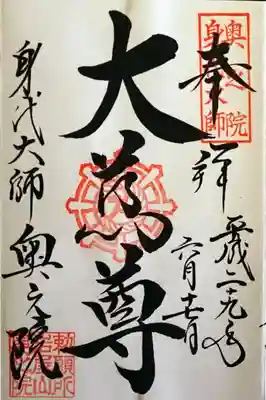 奥之院
身代大師
奉拝
平成二九年
六月十七日
大慈尊
身代大師
奥之院
勅願所